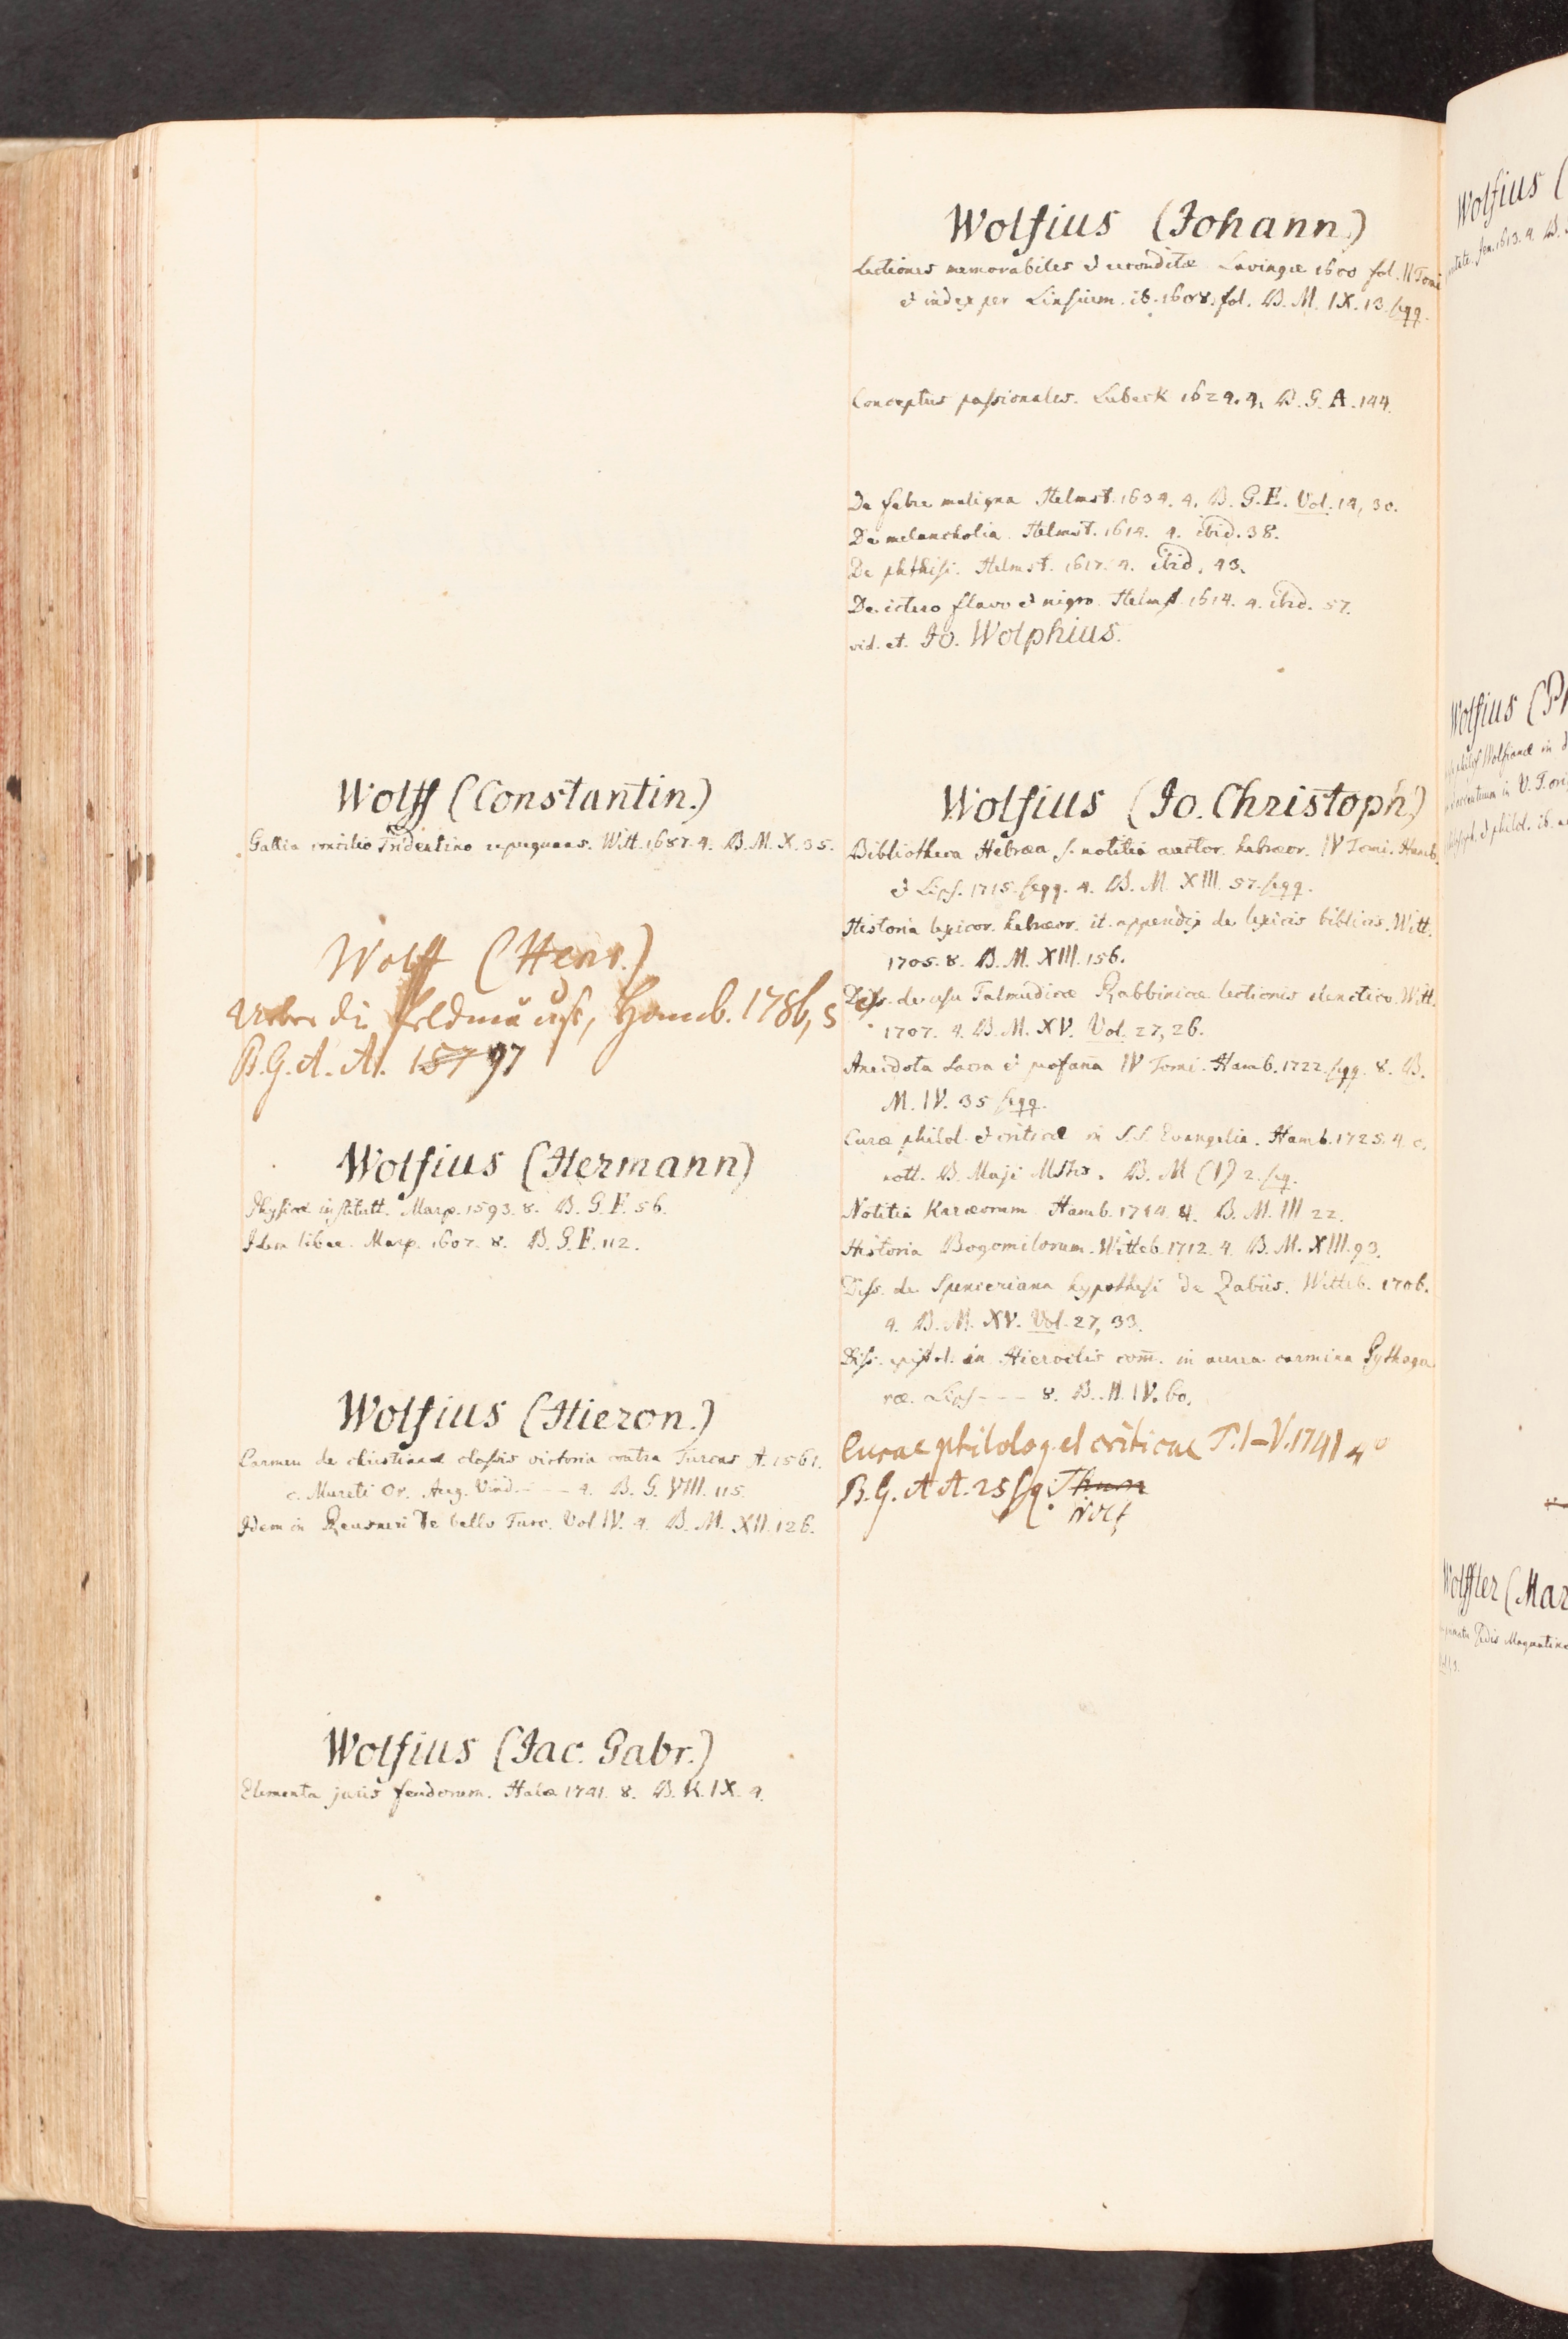 Wolff (Constantin.)
Gallia concilio Tridentino repugnans. Witt. 1687. 4. B. M. X. 35.
Wolff (Henr.)
Ueber die Feldmäuse, Hamb. 1786, 8
B. G. A. A. 157 97
Wolfius (Hermann)
Physicæ institutt. Marp. 1593. 8. B. G. F. 56.
Idem liber. Marp. 1607. 8. B. G. F. 112.
Wolfius (Hieron.)
Carmen de christianæ classis victoria contra Turcas A. 1561.
c. Mureti Or. Aug. Vind. - - - 4. B. G. VIII. 115.
Idem in Reusneri de bello Turc. Vol. IV. 4. B. M. XII. 126.
Wolfius (Jac. Gabr.)
Elementa juris feudorum. Halæ 1741. 8. B. K. IX. 4.
Wolfius (Johann.)
Lectiones memorabiles et reconditæ Lavingæ 1600 fol. II Tomi
et index per Linsium. ib. 1608. fol. B. M. IX. 13. seqq.
Conceptus passionales. Lubeck 1624. 4. B. G. A. 144.
De febre maligna Helmst. 1634. 4. B. G. E. Vol. 14, 30.
De melancholia. Helmst. 1614. 4. ibid. 38.
De phthisi. Helmst. 1617. 4. ibid. 43.
De ictero flavo et nigro. Helmst. 1614. 4. ibid. 57.
vid. et. Jo. Wolphius.
Wolfius (Jo. Christoph.)
Bibliotheca Hebræa s. notitia auctor. hebræor. IV Tomi. Hamb.
et Lips. 1715. seqq. 4. B. M. XIII. 57. seqq.
Historia lexicor. hebræor. it. appendix de lexicis biblicis. Witt.
1705. 8. B. M. XIII. 156.
Diss. de usu Talmudicæ Rabbinicæ lectionis elenctico. Witt.
1707. 4. B. M. XV. Vol. 27, 26.
Anecdota sacra et profana IV Tomi. Hamb. 1722. seqq. 8. B.
M. IV. 35 seqq.
Curæ philol. et criticæ in S.S. Evangelia. Hamb. 1725. 4. c.
nott. B. Maji Mstis. B. M (1) 2. sq.
Notitia Karæorum. Hamb. 1714. 4. B. M. III 22.
Historia Bogomilorum. Witteb. 1712. 4. B. M. XIII. 93.
Diss. de Spenceriana hypothesi de Zabiis. Witteb. 1706.
4. B. M. XV. Vol. 27, 33.
Diss. epistol. in Hieroclis com̅. in aurea carmina Pythago
ræ. Lips - - - 8. B. H. IV. 60.
Curae philolog. et criticae T. I-V. 1741 4º
B. G. A A. 25 sq. Thura
Wolf
Wolfius (
Wolfius (Ph
Wolffter (Mar